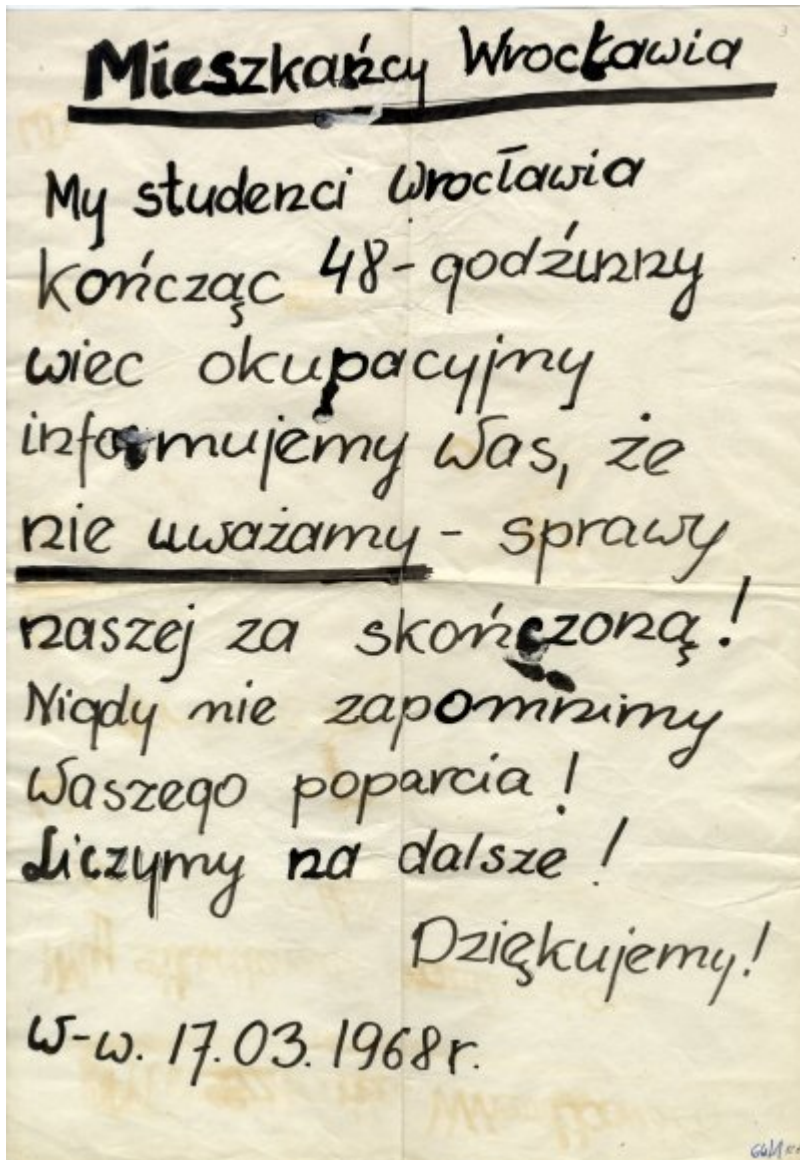 Mieszkańcy Wrocławia
My studenci Wrocławia
kończąc 48-godzinny
wiec okupacyjny
informujemy Was, że
nie uważamy - sprawy
naszej za skończoną!
Nigdy nie zapomnimy
Waszego poparcia!
Liczymy na dalsze!
Dziękujemy!
W-w. 17.03.1968r.
3